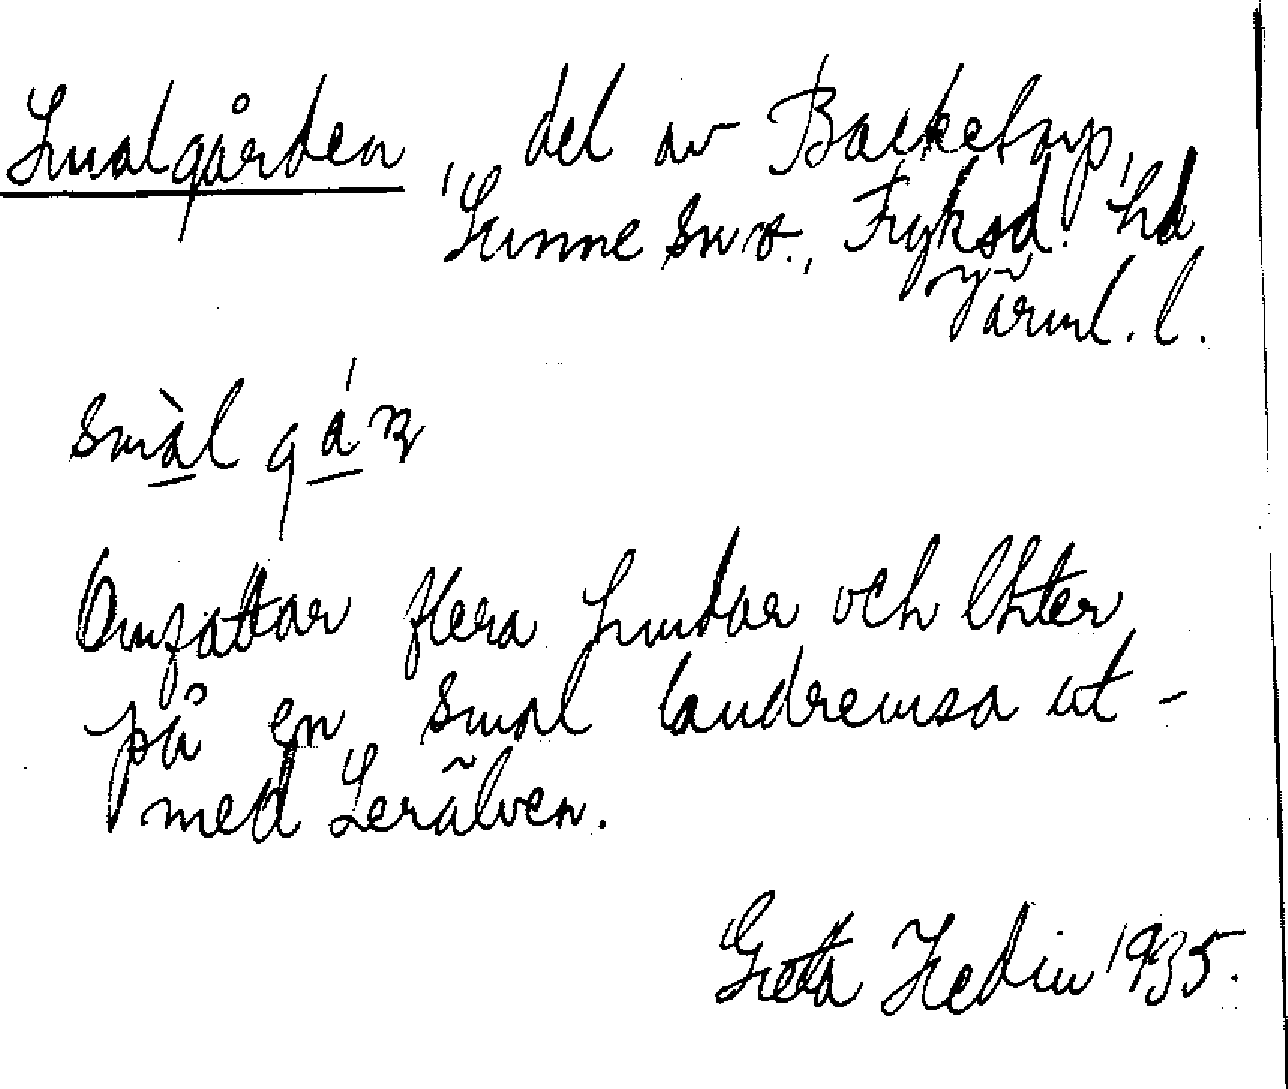 Smalgården, del av Backetorp,
Sunne snv., Fryksd. hd
Värml. l.
smàl gá
Omfattar flera hundar och lhter
på en smal landremsa ut-
med Lerälven.
Greta Hedin 1935.